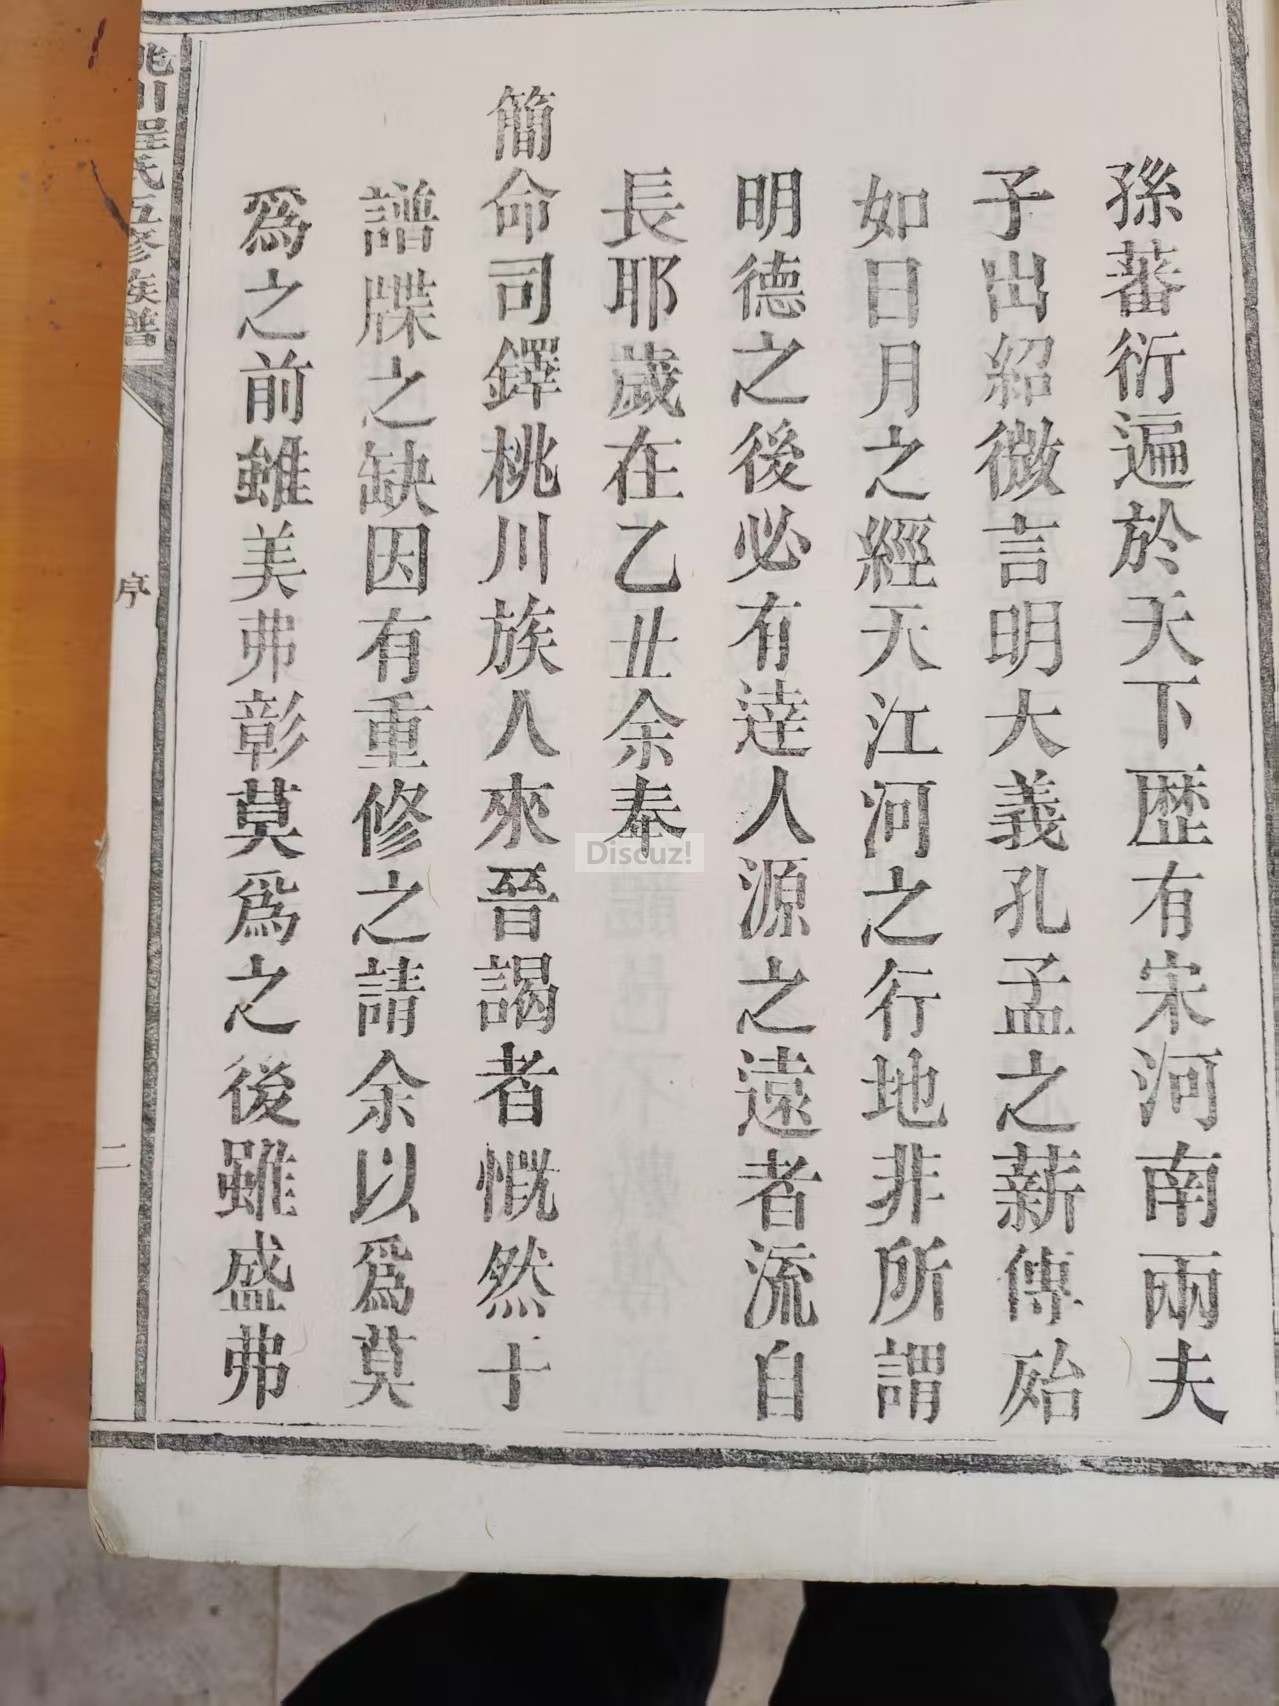 孫蕃衍遍於天下歴有宋河南兩夫
子出紹微言明大義孔孟之薪傳殆
如日月之經天江河之行地非所謂
明德之後必有達人源之遠者流自
長耶歲在乙丑余奉
簡命司鐸桃川族人來晉謁者慨然十
譜牒之缺因有重修之請余以爲莫
爲之前雖美弗彰莫爲之後雖盛弗
桃川程氏五修族譜
序
二
Discuz!